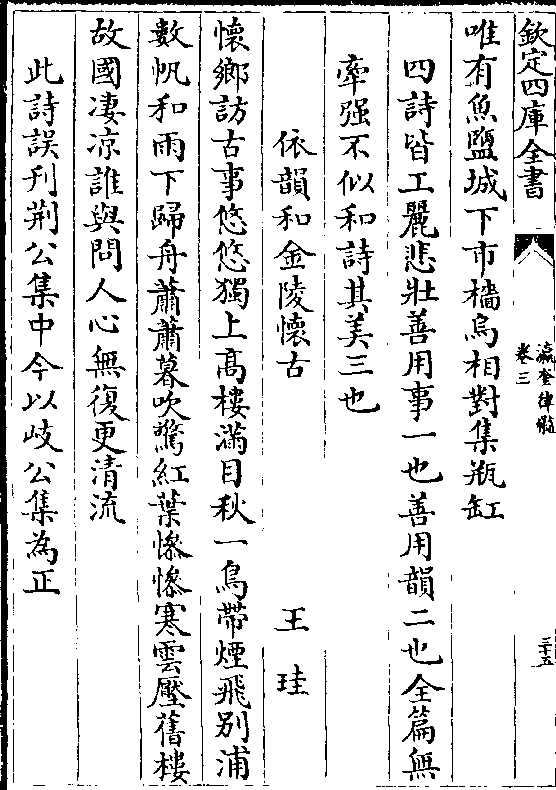 欽定四庫全書
瀛奎律髓
卷三
三十五
唯有魚鹽城下市檣烏相對集瓶缸
四詩皆工麗悲壯善用事一也善用韻二也全篇無
牽强不似和詩其美三也
依韻和金陵懷古 王珪
懷鄉訪古事悠悠獨上髙樓滿目秋一鳥帶煙飛别浦
數帆和雨下歸舟蕭蕭暮吹驚紅葉慘慘寒雲壓舊樓
故國凄凉誰與問人心無復更清流
此詩誤刋荆公集中今以岐公集為正